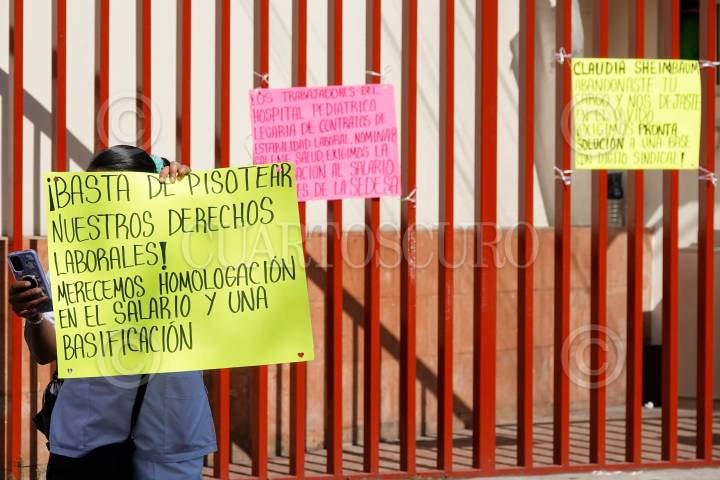 ¡BASTA DE PISOTEAR
NUESTROS DERECHOS
LABORALES!
MERECEMOS HOMOLOGACIÓN
EN EL SALARIO Y UNA
BASIFICACIÓN
LOS TRABAJADORES DEL
HOSPITAL PEDIATRICO
LEGARIA DE CONTRATOS DE
ESTABILIDAD LABORAL, NOMINA 8
SALUD EXIGIMOS LA
AL SALARIO
DE LA SEDESA
CLAUDIA SHEIMBAUM
ABANDONASTE TU
CARGO Y NOS DEJASTE
EXIGIMOS PRONTA
SOLUCIÓN A UNA BASE
CON DIGITO SINDICAL!
CUARTOSCURO